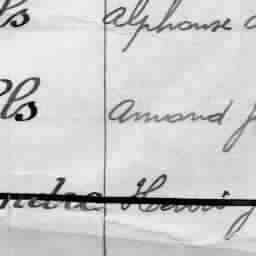 ls Alphonse
lls Armand J
ndre Henri J